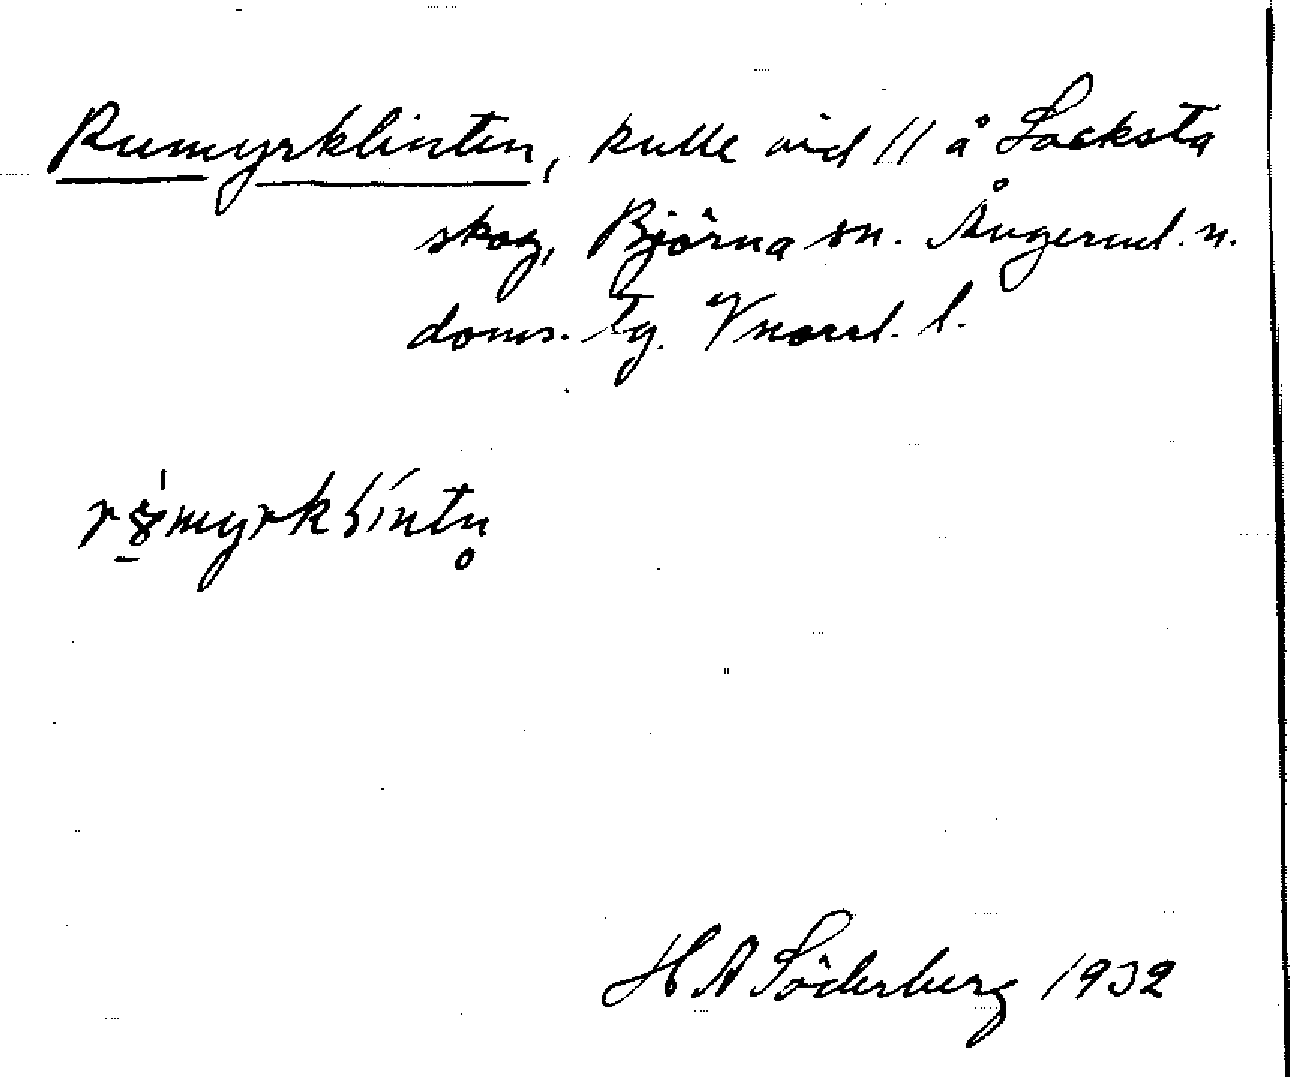 Rumyrklinten, kulle vid // å Locksta
skog, Björna sn. Ångerml. n.
doms. tg. Vnorrl. l.
H A Söderberg 1932